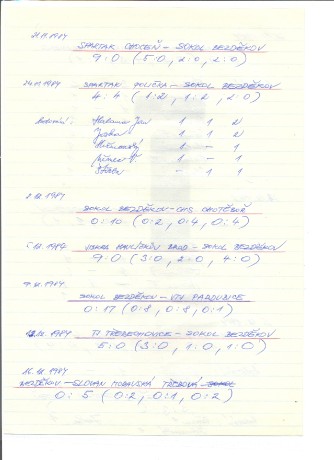 21.11.1987
SPARTAK CHOCEŇ - SOKOL BEZDĚKOV
9:0 (5:0, 2:0, 2:0)
24.11.1987 SPARTAK POLIČKA - SOKOL BEZDĚKOV
4:4 (1:2, 1:2, 2:0)
Jan 1 1 2
1 1 2
1 - 1
1 - 1
1 1 -
2.12.1987
SOKOL BEZDĚKOV - CHOTĚBOŘ
0:10 (0:2, 0:4, 0:4)
5.12.1987 JISKRA HAVLÍČKŮV BROD - SOKOL BEZDĚKOV
9:0 (3:0, 2:0, 4:0)
9.12.1987
SOKOL BEZDĚKOV - VTJ PARDUBICE
0:17 (0:8, 0:8, 0:1)
12.12.1987 TJ TŘEBECHOVICE - SOKOL BEZDĚKOV
5:0 (3:0, 1:0, 1:0)
16.12.1987
BEZDĚKOV - SLOVAN MORAVSKÁ TŘEBOVÁ
0:5 (0:2, 0:1, 0:2)